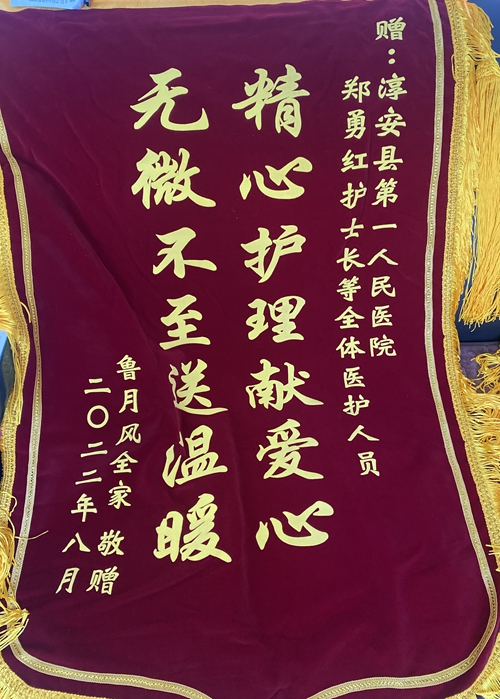 赠：淳安县第一人民医院
郑勇红护士长等全体医护人员
精心护理献爱心
无微不至送温暖
鲁月风全家 敬赠
二〇二二年八月